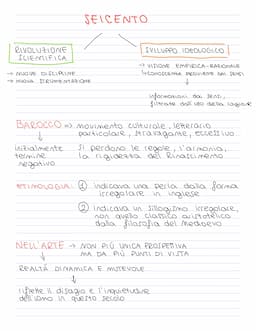 SEICENTO
RIVOLUZIONE
SCIENTIFICA
→ NUOVE DISCIPLINE
→ NUOVA STRUMENTAZIONE
SVILUPPO IDEOLOGICO
→ VISIONE EMPIRICA-RAZIONALE
→ CONOSCENZA PROVIENE DAI SENSI
informazioni dai sensi,
filtrate dall'uso della
BAROCCO → movimento culturale, letterario
particolare, stravagante, eccessivo
inizialmente
termine
negativo
si perdono le regole, l'armonia,
la rigidezza del Rinascimento
ETIMOLOGIA: 1 indicava una perla dalla forma
irregolare in inglese
2 indicava un sillogismo irregolare,
non quello classico aristotelico
dalla filosofia del Medioevo
NELL'ARTE → NON PIÙ UNICA PROSPETTIVA
MA DA PIÙ PUNTI DI VISTA
REALTÀ DINAMICA E MUTEVOLE
riflette il disagio e l'inquietudine
dell'uomo in questo secolo